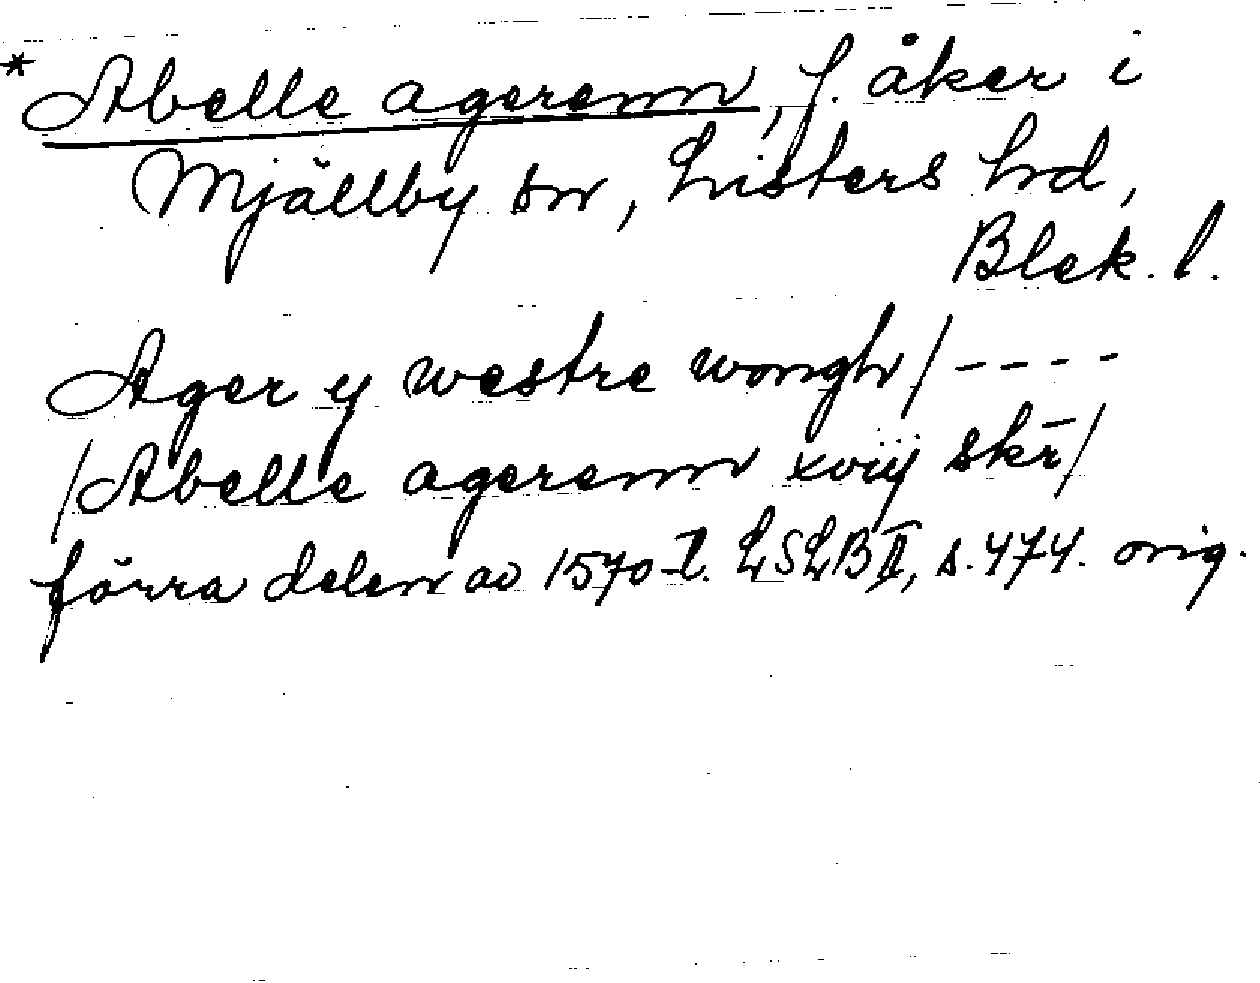 * Abelle agerenn, f. åker i
Mjällby sn, Listers hd,
Blek. l.
Ager y westre wongh/----
/Abelle agerenn xviij skr̄/
förra delen av 1570-t. LSLB II, s. 474. orig.